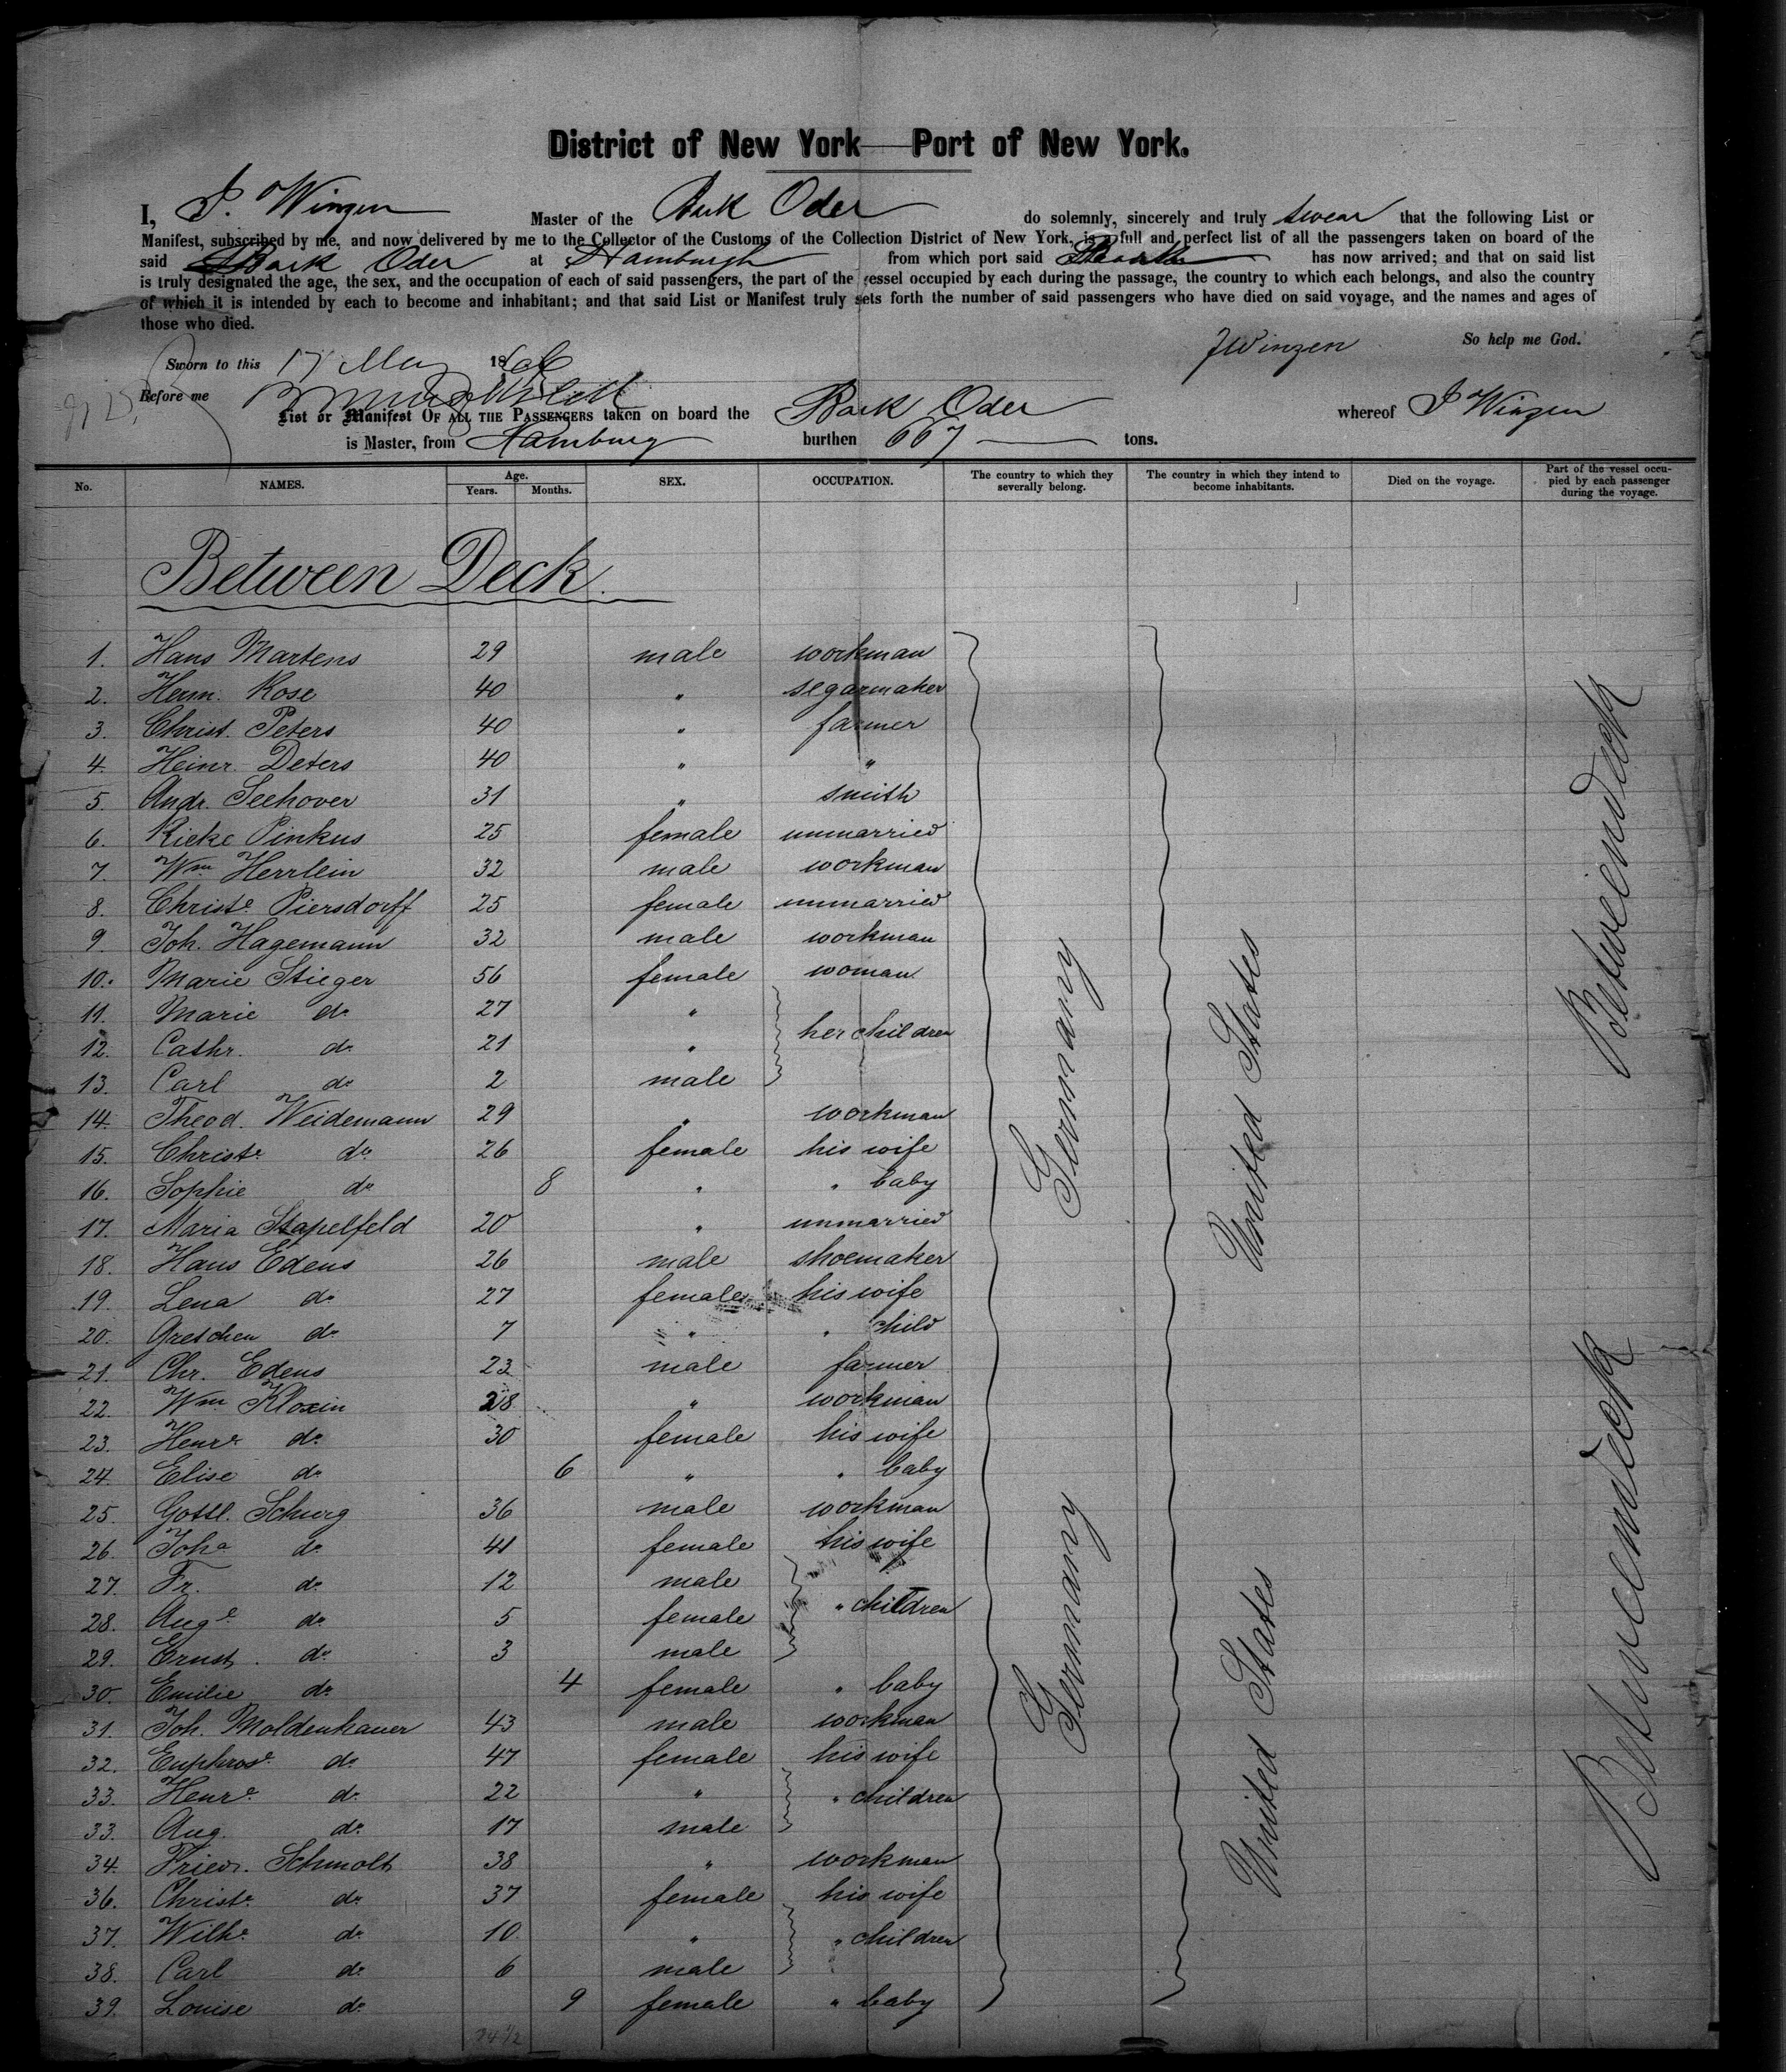 District of New York—Port of New York.
I, J. Winzen Master of the Bark Oder do solemnly, sincerely and truly swear that the following List or
Manifest, subscribed by me, and now delivered by me to the Collector of the Customs of the Collection District of New York, is a full and perfect list of all the passengers taken on board of the
said Bark Oder at Hamburgh from which port said has now arrived; and that on said list
is truly designated the age, the sex, and the occupation of each of said passengers, the part of the vessel occupied by each during the passage, the country to which each belongs, and also the country
of which it is intended by each to become and inhabitant; and that said List or Manifest truly sets forth the number of said passengers who have died on said voyage, and the names and ages of
those who died.
JWinzen So help me God.
Sworn to this 17 May 1866
Before me
List or Manifest OF ALL THE PASSENGERS taken on board the Bark Oder whereof J Winzen
is Master, from Hamburg burthen 667 tons.
No. NAMES. Age. Years. Months. SEX. OCCUPATION. The country to which they severally belong. The country in which they intend to become inhabitants. Died on the voyage. Part of the vessel occupied by each passenger during the voyage.
Between Deck.
1. Hans Martens 29 male workman
2. Herm. Rose 40 " segarmaker
3. Christ. Peters 40 " farmer
4. Heinr. Deters 40 " "
5. Andr. Seehover 31 " smith
6. Rieke Pinkus 25 female unmarried
7. Wm Herrlein 32 male workman
8. Christe. Piersdorff 25 female unmarried
9. Joh. Hagemann 32 male workman
10. Marie Stieger 56 female woman
11. Marie do. 27 "
12. Cathr. do. 21 " her children
13. Carl do. 2 male
14. Theod. Weidemann 29 " workman
15. Christe. do. 26 female his wife
16. Sophie do. 8 " " baby
17. Maria Stapelfeld 20 " unmarried
18. Hans Edens 26 male shoemaker
19. Lena do. 27 female his wife
20. Gretchen do. 7 " " child
21. Chr. Edens 23 male farmer
22. Wm Kloxin 28 " workman
23. Henre. do. 30 female his wife
24. Elise do. 6 " " baby
25. Gottl. Schurg 36 male workman
26. Joha do. 41 female his wife
27. Fr. do. 12 male
28. Auge do. 5 female " children
29. Ernst. do. 3 male
30. Emilie do. 4 female " baby
31. Joh. Moldenhauer 43 male workman
32. Euphrose. do. 47 female his wife
33. Henre. do. 22 " " children
33. Aug. do. 17 male
34. Friedr. Schmolt 38 " workman
36. Christe. do. 37 female his wife
37. Wilhe. do. 10 " " children
38. Carl do. 6 male
39. Louise do. 9 female " baby
24 1/2
Germany
Germany
United States
United States
Betweendeck
Betweendeck